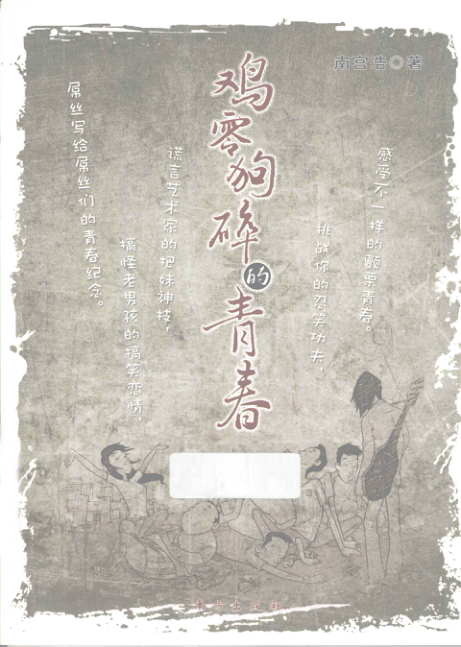 南宫浩◎著
鸡零狗碎的青春
感受不一样的颤栗青春。
挑战你的忍笑功夫，
谎言艺术家的把妹神技，
搞怪老男孩的搞笑恋情，
屌丝写给屌丝们的青春纪念。